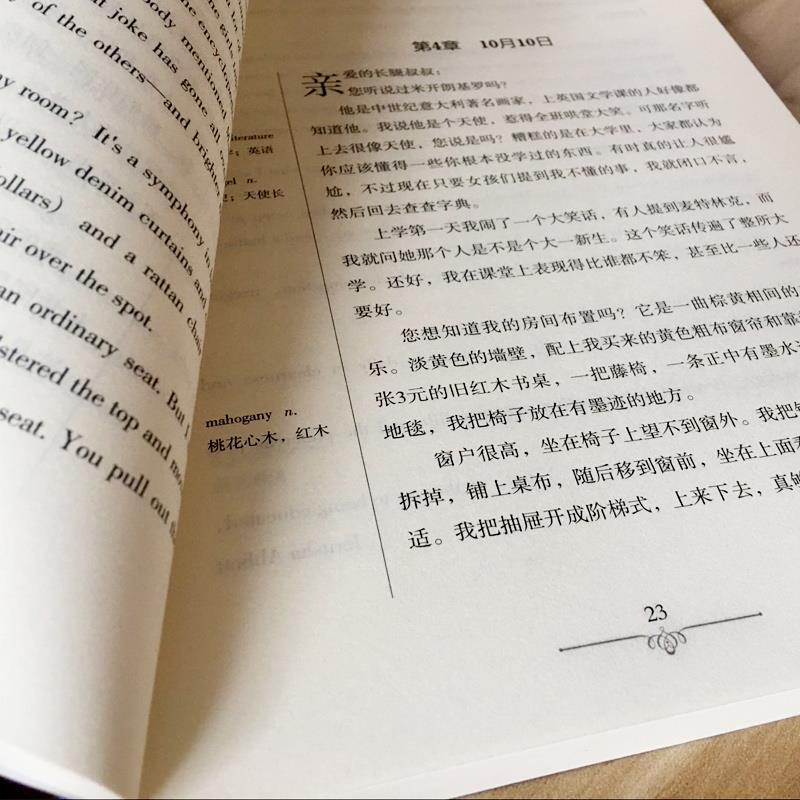 body mentioned
joke has gone all
of the others—and brighte
y room? It's a symphony in
yellow denim curtains and
ollars) and a rattan chair
air over the spot.
an ordinary seat. But I
stered the top and mo
seat. You pull out
第4章 10月10日
亲爱的长腿叔叔：
您听说过米开朗基罗吗？
他是中世纪意大利著名画家，上英国文学课的人好像都
知道他。我说他是个天使，惹得全班哄堂大笑。可那名字听
上去很像天使，您说是吗？糟糕的是在大学里，大家都认为
你应该懂得一些你根本没学过的东西。有时真的让人很尴
尬，不过现在只要女孩们提到我不懂的事，我就闭口不言，
然后回去查查字典。
上学第一天我闹了一个大笑话，有人提到麦特林克，而
我就问她那个人是不是个大一新生。这个笑话传遍了整所大
学。还好，我在课堂上表现得比谁都不笨，甚至比一些人还
要好。
您想知道我的房间布置吗？它是一曲棕黄相间的
乐。淡黄色的墙壁，配上我买来的黄色粗布窗帘和靠
张3元的旧红木书桌，一把藤椅，一条正中有墨水
地毯，我把椅子放在有墨迹的地方。
窗户很高，坐在椅子上望不到窗外。我把
拆掉，铺上桌布，随后移到窗前，坐在上面
适。我把抽屉开成阶梯式，上来下去，真够
iterature
；英语
el n.
；天使长
mahogany n.
桃花心木，红木
23